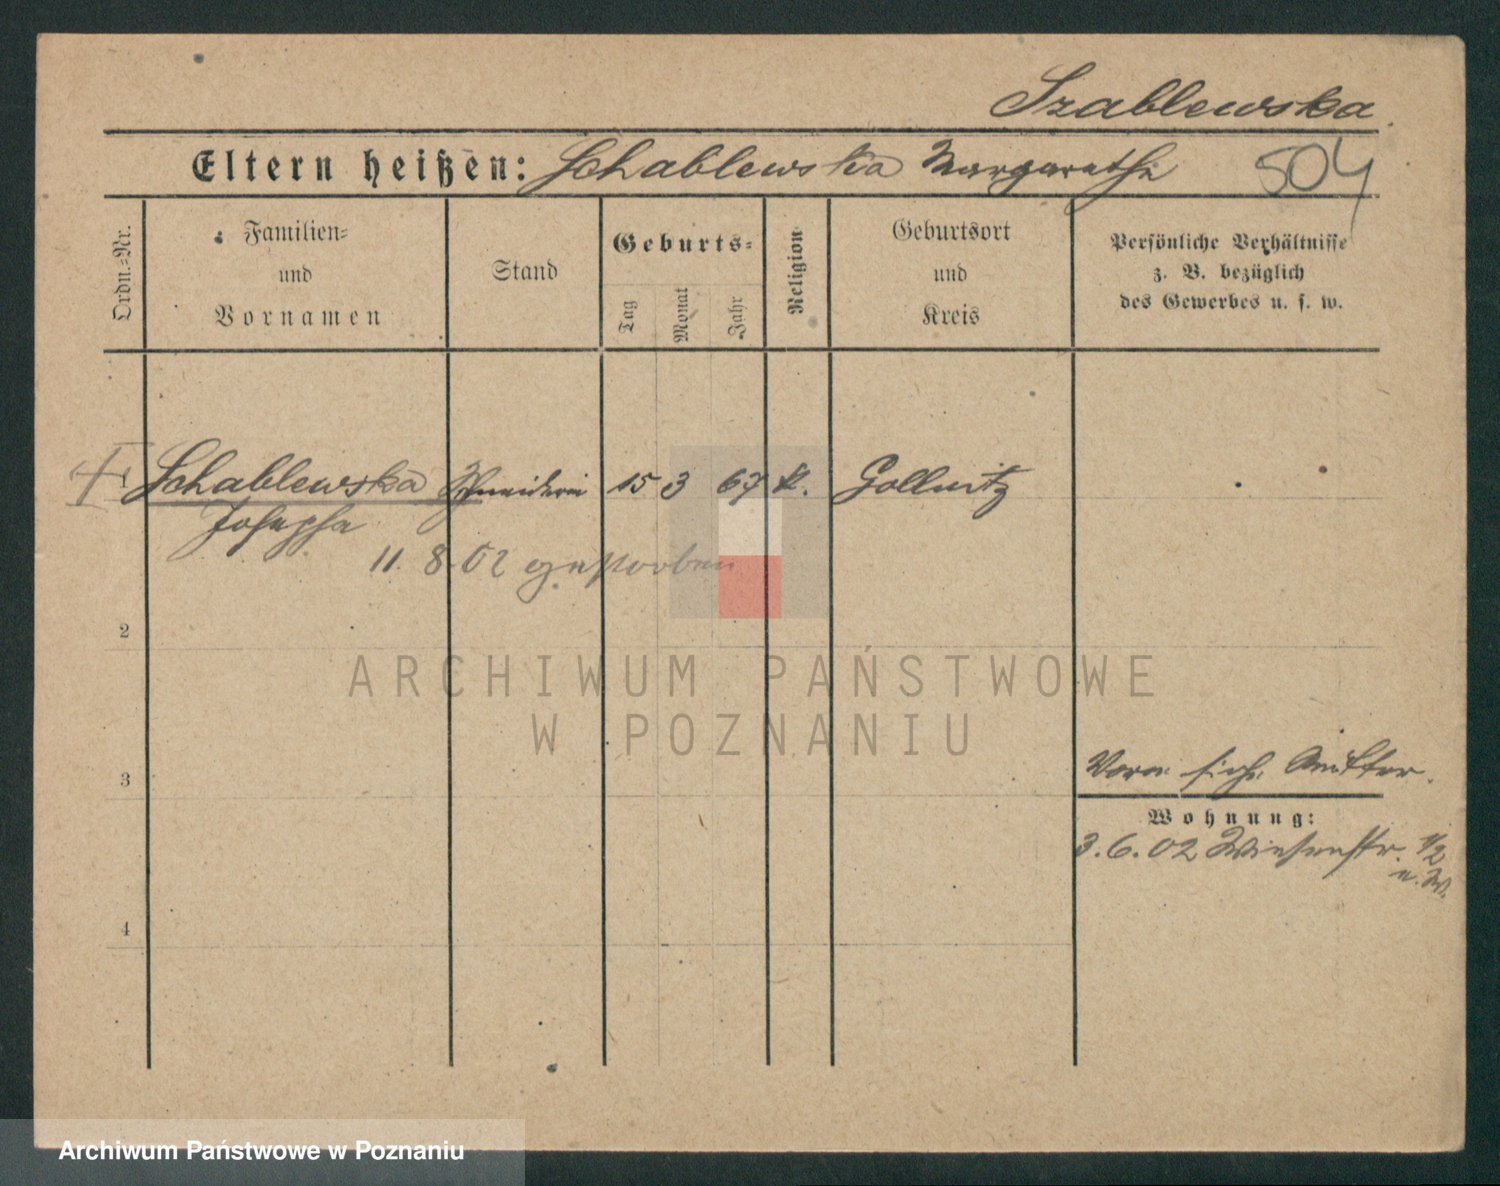 Szablewska.
Eltern heißen: Schablewska Margarethe 504
Ordn.-Nr.
Familien-
und
Vornamen
Stand
Geburts-
Tag
Monat
Jahr
Religion
Geburtsort
und
Kreis
Persönliche Verhältnisse
z. B. bezüglich
des Gewerbes u. s. w.
Schablewska Schneiderin 15 3 67 k. Gollnitz
Josepha
11. 8. 02 gestorben
2
3
Vorm. siehe Mutter.
Wohnung:
3. 6. 02 Wiesenstr. 1/2
4
ARCHIWUM PAŃSTWOWE
W POZNANIU
Archiwum Państwowe w Poznaniu